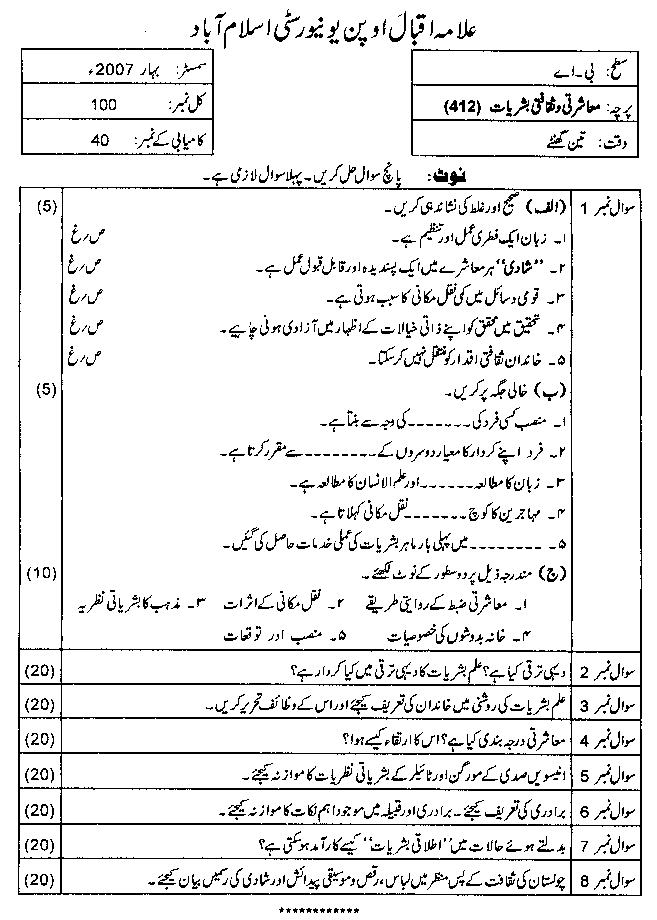 علامہ اقبال اوپن یونیورسٹی اسلام آباد
سطح: بی۔اے
سمسٹر: بہار 2007ء
پرچہ: معاشرتی و ثقافتی بشریات (412)
کل نمبر: 100
وقت: تین گھنٹے
کامیابی کے نمبر: 40
نوٹ: پانچ سوال حل کریں۔ پہلا سوال لازمی ہے۔
سوال نمبر 1 (الف) صحیح اور غلط کی نشاندہی کریں۔ (5)
۱۔ زبان ایک فطری عمل اور تنظیم ہے۔ ص/غ
۲۔ "شادی" ہر معاشرے میں ایک پسندیدہ اور قابل قبول عمل ہے۔ ص/غ
۳۔ قومی وسائل میں کمی نقل مکانی کا سبب ہوتی ہے۔ ص/غ
۴۔ تحقیق میں محقق کو اپنے ذاتی خیالات کے اظہار میں آزادی ہونی چاہیے۔ ص/غ
۵۔ خاندان ثقافتی اقدار کو منتقل نہیں کر سکتا۔ ص/غ
(ب) خالی جگہ پر کریں۔ (5)
۱۔ منصب کسی فرد کی ۔۔۔۔۔۔۔ کی وجہ سے بنتا ہے۔
۲۔ فرد اپنے کردار کا معیار دوسروں کے ۔۔۔۔۔۔۔۔ سے مقرر کرتا ہے۔
۳۔ زبان کا مطالعہ ۔۔۔۔۔۔ اور علم الانسان کا مطالعہ ہے۔
۴۔ مہاجرین کا کوچ ۔۔۔۔۔۔۔ نقل مکانی کہلاتا ہے۔
۵۔ ۔۔۔۔۔۔۔۔ میں پہلی بار ماہر بشریات کی عملی خدمات حاصل کی گئیں۔
(ج) مندرجہ ذیل پر دو سطور کے نوٹ لکھئے۔ (10)
۱۔ معاشرتی ضبط کے روایتی طریقے ۲۔ نقل مکانی کے اثرات ۳۔ مذہب کا بشریاتی نظریہ
۴۔ خانہ بدوشوں کی خصوصیات ۵۔ منصب اور توقعات
سوال نمبر 2 دیہی ترقی کیا ہے؟ علم بشریات کا دیہی ترقی میں کیا کردار ہے؟ (20)
سوال نمبر 3 علم بشریات کی روشنی میں خاندان کی تعریف کیجئے اور اس کے وظائف تحریر کریں۔ (20)
سوال نمبر 4 معاشرتی درجہ بندی کیا ہے؟ اس کا ارتقاء کیسے ہوا؟ (20)
سوال نمبر 5 انیسویں صدی کے مورگن اور ٹائیلر کے بشریاتی نظریات کا موازنہ کیجئے۔ (20)
سوال نمبر 6 برادری کی تعریف کیجئے۔ برادری اور قبیلہ میں موجود اہم نکات کا موازنہ کیجئے۔ (20)
سوال نمبر 7 بدلتے ہوئے حالات میں "اطلاقی بشریات" کیسے کارآمد ہو سکتی ہے؟ (20)
سوال نمبر 8 چولستان کی ثقافت کے پس منظر میں لباس، رقص و موسیقی پیدائش اور شادی کی رسمیں بیان کیجئے۔ (20)
************